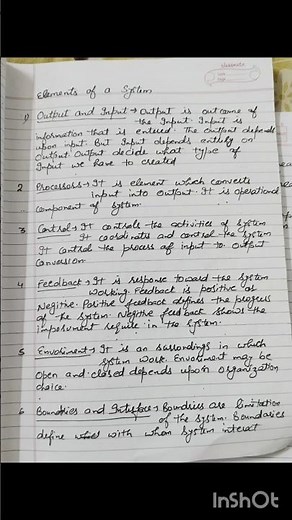 classmate
Elements of a System
1) Output and Input → Output is outcome of
the Input. Input is
information that is entered. The output depends
upon input. But Input depends entirely on
Output. Output decide what type of
Input we have to created
2 Processors → It is element which converts
input into output. It is operational
component of system.
3 Control → It controls the activities of system
It coordinates and control the system
It control the process of input to output
Conversion
4 Feedback → It is response toward the system
working. Feedback is positive or
Negitive. Positive feedback defines the progress
of the system. Negitive feedback shows the
improvment require in the system.
5 Envoriment → It is an surrondings in which
system work. Envoriment may be
open and closed depends upon organization
choice.
6 Boundries and Interface → Boundries are limitation
of the system. Boundaries
define with whom system interact
InShOt